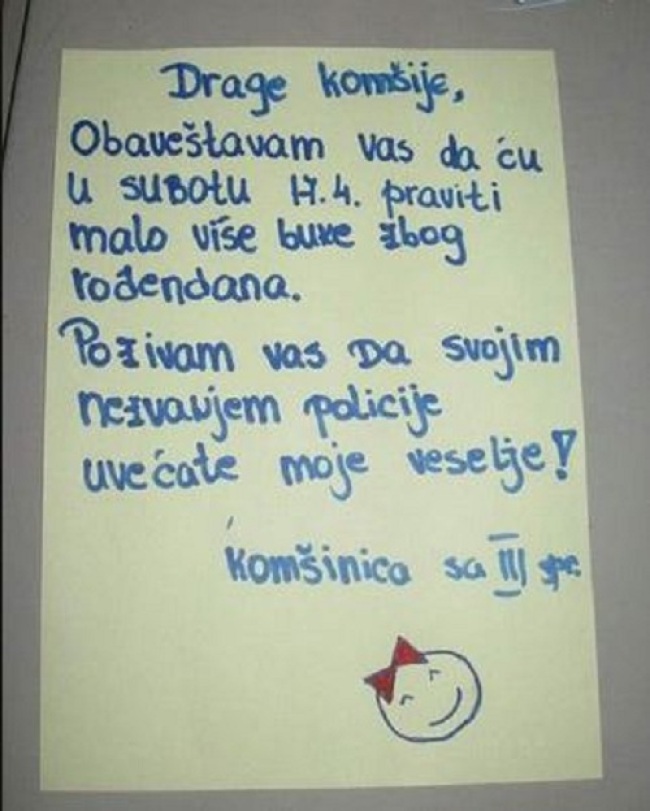 Drage komšije,
Obaveštavam vas da ću
u subotu 17.4. praviti
malo više buke zbog
rođendana.
Pozivam vas da svojim
nezvanjem policije
uvećate moje veselje!
Komšinica sa III spr.